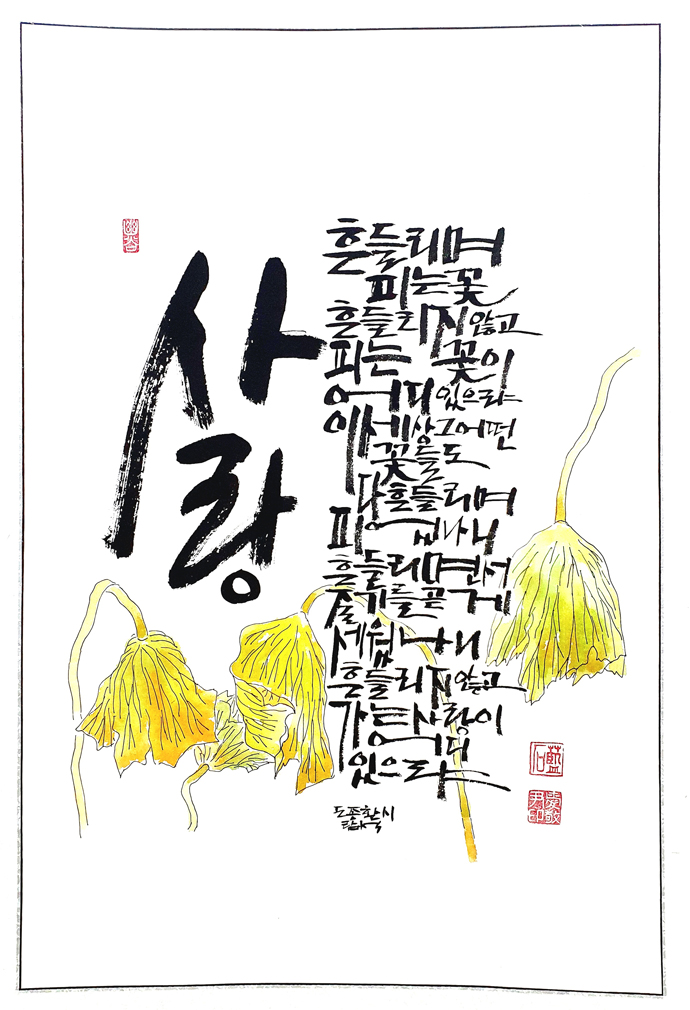 사랑
흔들리며
피는 꽃
흔들리지 않고
피는 꽃이
어디 있으랴
이 세상 그 어떤
꽃들도
다 흔들리며
피었나니
흔들리면서
줄기를 곧게
세웠나니
흔들리지 않고
가는 사랑이
어디
있으랴
도종환 시
藍石